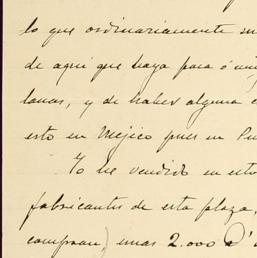 lo que ordinariamente su
de aqui que haya para ó
lanas, y de haber alguna
esto en Mejico pues en Pu
Yo he vendido en esto
fabricantes de esta plaza,
compraan) unas 2.000 @